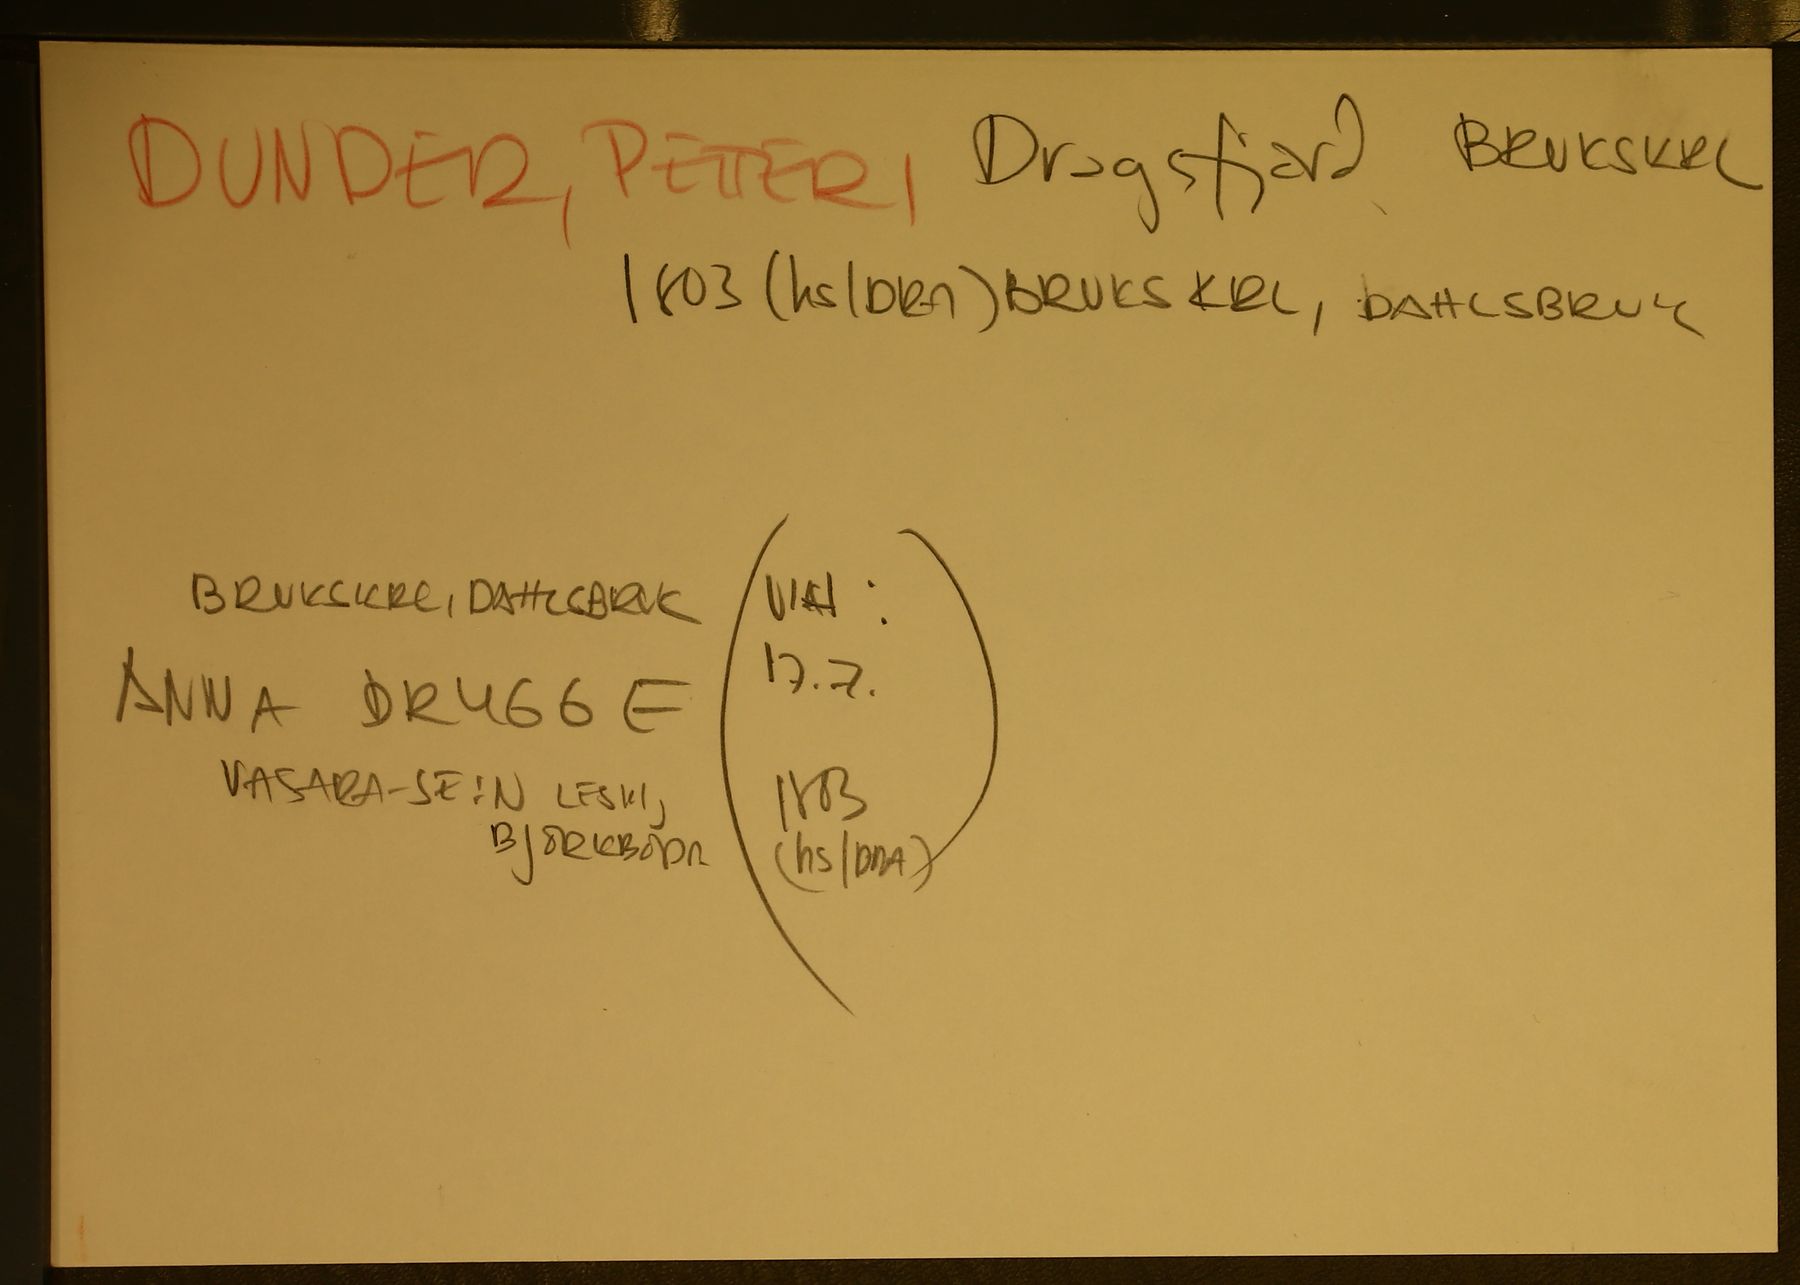 DUNDER, PETTER, Dragsfjärd BRUKSKRL
1803 (hs/DRA) BRUKSKRL, DAHLSBRUK
BRUKSKRL, DAHLSBRUK
ANNA DRYGGE
VASARA-SE:N LESKI,
BJÖRKBODA
(VIH:
17.7.
1803
(hs/DRA))